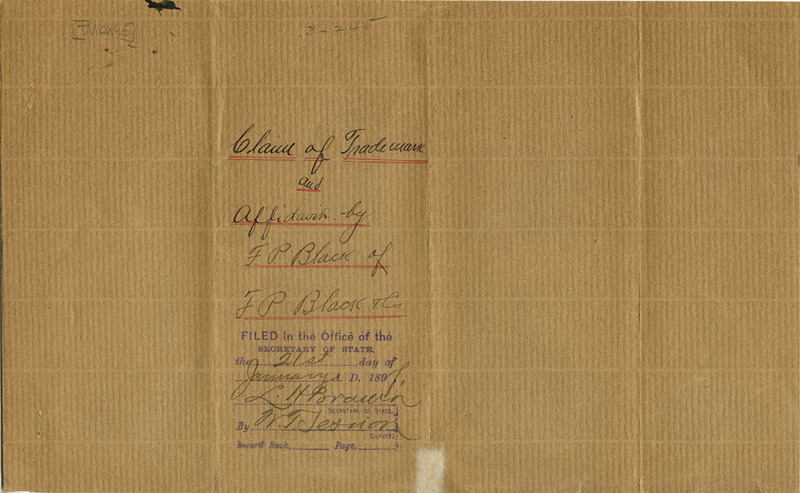 3-245
Claim of Trademark
and
Affidavit by
F P Black of
F P Black & Co
FILED in the Office of the
SECRETARY OF STATE,
the 21st day of
January A. D. 189
L. H. Brown
SECRETARY OF STATE.
By W. T.
DEPUTY.
Record Book, Page,